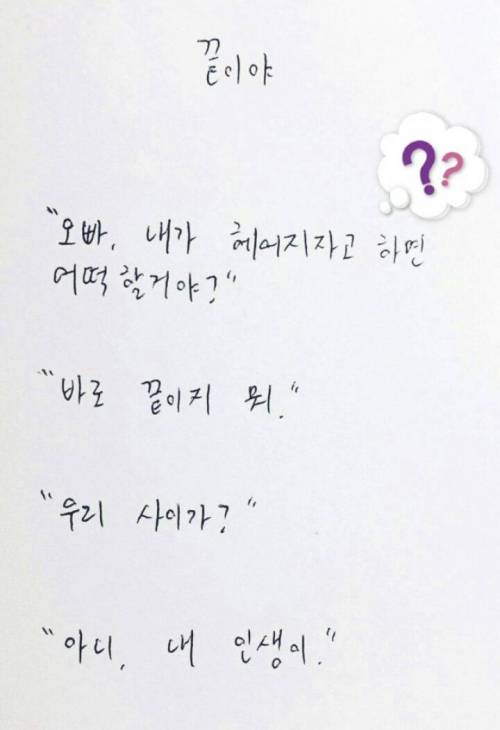 끝이야
??
"오빠, 내가 헤어지자고 하면
어떡할거야?"
"바로 끝이지 뭐."
"우리 사이가?"
"아니, 내 인생이."